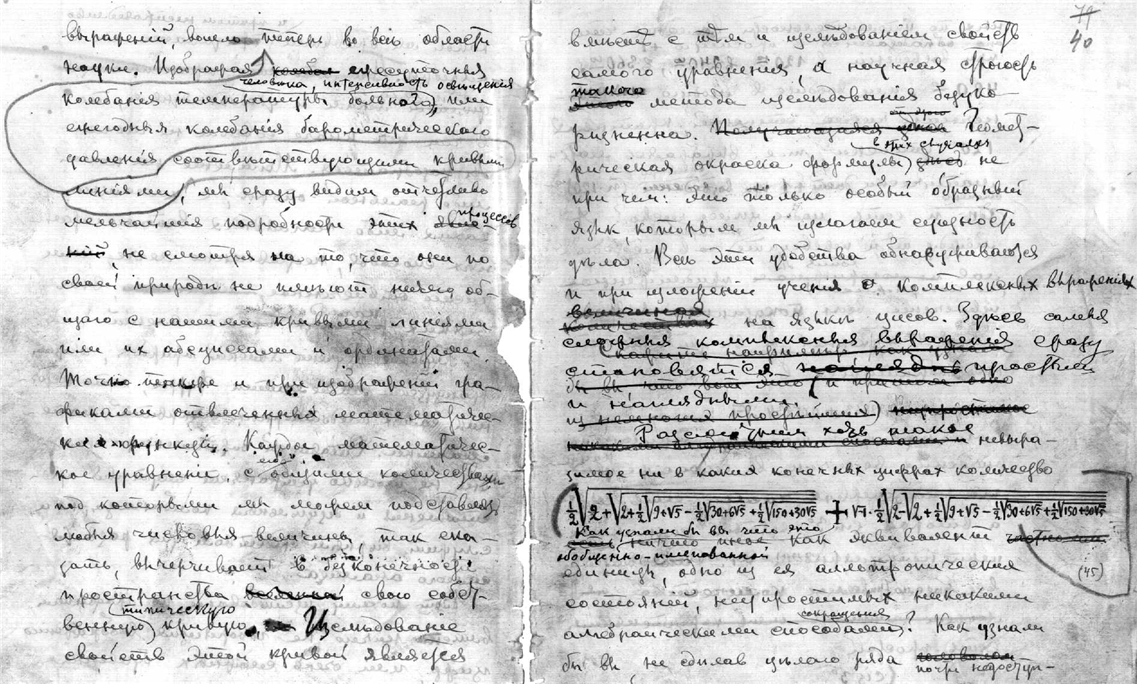 выраженій, вошло теперь во всѣ области
науки. Изображая переодическія
человѣка, интенсивность освѣщенія
колебанія температуры больного, или
ежегодныя колебанія барометрическаго
давленія соотвѣтствующими кривыми
линіями, мы сразу видимъ отчетливо
мельчайшія подробности этихъ
процессовъ
не смотря на то, что они по
своей природѣ не имѣютъ ничего об-
щаго съ нашими кривыми линіями
или ихъ абсциссами и ординатами.
Точно также и при изображеніи гра-
фиками отвлеченныхъ математичес-
кихъ функцій. Каждое математичес-
кое уравненіе, съ общими количествами
подъ которыми мы можемъ подставлять
любыя числовыя величины, такъ ска-
зать, вычерчиваетъ въ безконечности
пространства свою собст-
типическую
венную кривую. Изслѣдованіе
свойствъ этой кривой является
74
40
вмѣстѣ съ тѣмъ и изслѣдованіемъ свойствъ
самого уравненія, а научная строгость
такого
метода изслѣдованія безуко-
ризненна. Геомет-
въ этихъ случаяхъ
рическая окраска формулы не
при чемъ: это только особый образный
языкъ, которымъ мы излагаемъ сущность
дѣла. Всѣ эти удобства обнаруживаются
и при изложеніи ученія о комплексныхъ выраженіяхъ
на языкѣ числъ. Здѣсь самыя
сложныя комплексныя выраженія сразу
становятся простыми
и наглядными.
Разсмотримъ хоть такое
невыра-
зимое ни въ какихъ конечныхъ цифрахъ количество
½√2+√2+½√9+√5−½√30+6√5+½√150+30√5 + √-1·½√2−√2+½√9+√5−½√30+6√5+½√150+30√5
Какъ узнали бы вы, что это
ничто иное какъ эквивалентъ
обобщенно-именованной
(45)
единицы, одно изъ ея аллотропическихъ
состояній, неупростимыхъ никакими
сокращенія
алгебраическими способами? Какъ узнали
бы вы не сдѣлавъ цѣлаго ряда
почти недоступ-